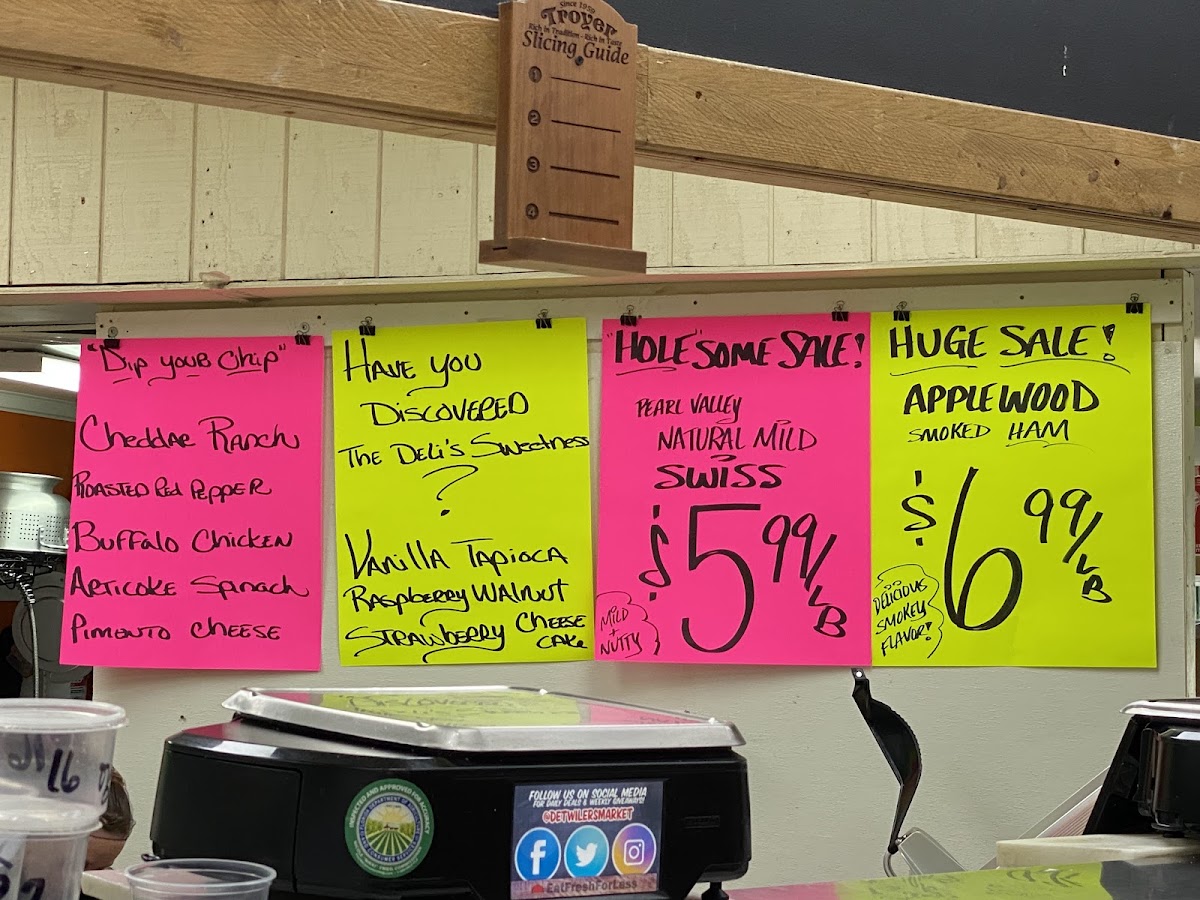 Since 1959
Troyer
Rich in Tradition - Rich in Taste
Slicing Guide
1
2
3
4
"Dip your Chip"
Cheddar Ranch
Roasted Red Pepper
Buffalo Chicken
Articoke Spinach
Pimento Cheese
Have you
Discovered
The Deli's Sweetness
?
Vanilla Tapioca
Raspberry Walnut
Strawberry Cheese
Cake
"Hole"some Sale!
Pearl Valley
Natural Mild
Swiss
$5 99/LB
Mild
+
Nutty
Huge Sale!
Applewood
Smoked Ham
$6 99/LB
Delicious
Smokey
Flavor!
INSPECTED AND APPROVED FOR ACCURACY
FOLLOW US ON SOCIAL MEDIA
FOR DAILY DEALS & WEEKLY GIVEAWAYS!
@DETWILERSMARKET
EatFreshForLess
16